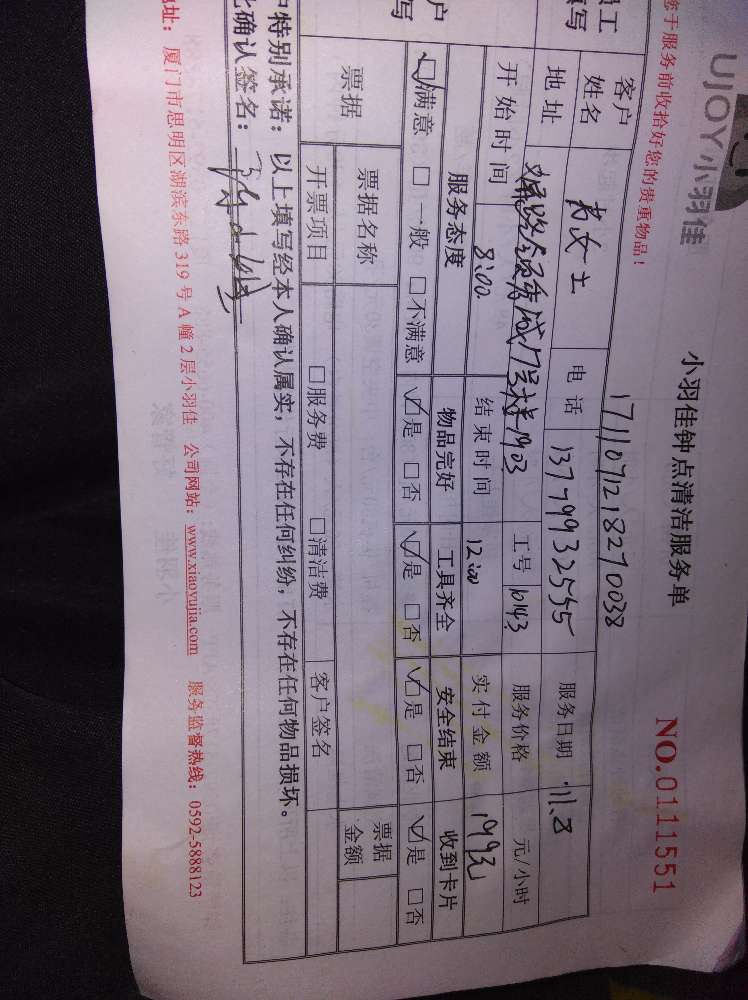 UJOY小羽佳
小羽佳钟点清洁服务单
NO.0111551
您于服务前收拾好您的贵重物品！
1711071218270038
员工 填写
客户姓名 女士 电话 13779932555 服务日期 11.8
地址 1903 工号 10143 服务价格 元/小时
开始时间 8:00 结束时间 12:00 实付金额
户 写
服务态度 物品完好 工具齐全 安全结束 收到卡片
☑满意 □一般 □不满意 ☑是 □否 ☑是 □否 ☑是 □否 ☑是 □否
票据 票据名称 票据金额
开票项目 □服务费 □清洁费 客户签名
户特别承诺：以上填写经本人确认属实，不存在任何纠纷，不存在任何物品损坏。
此确认签名：
地址：厦门市思明区湖滨东路319号A幢2层小羽佳 公司网站：www.xiaoyujia.com 服务监督热线：0592-5888123